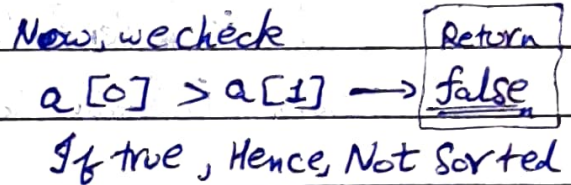 Now, we check Return
a[0] > a[1] → false
If true, Hence, Not Sorted